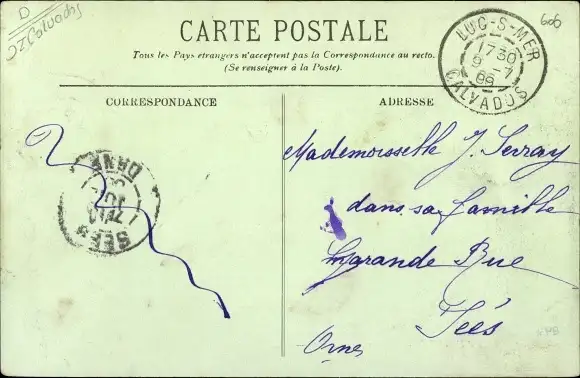 D
JZ Calvados
606
CARTE POSTALE
Tous les Pays étrangers n'acceptent pas la Correspondance au recto.
(Se renseigner à la Poste).
LUC-S-MER
17 30
9 - 7
09
CALVADOS
CORRESPONDANCE
ADRESSE
ORNE
SEES
Mademoiselle J. Serray
dans sa famille
Grande Rue
Sées
Orne